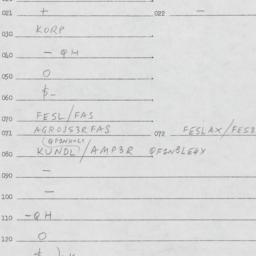 021 + 022 -
030 KORP
040 - QH
050 O
060 $-
070 FESL/FAS
071 AGROJS3RFAS 072 FESLAX/FES3
080 KUNDL/AMP3R
090 -
100 -
110 -QH
120 O